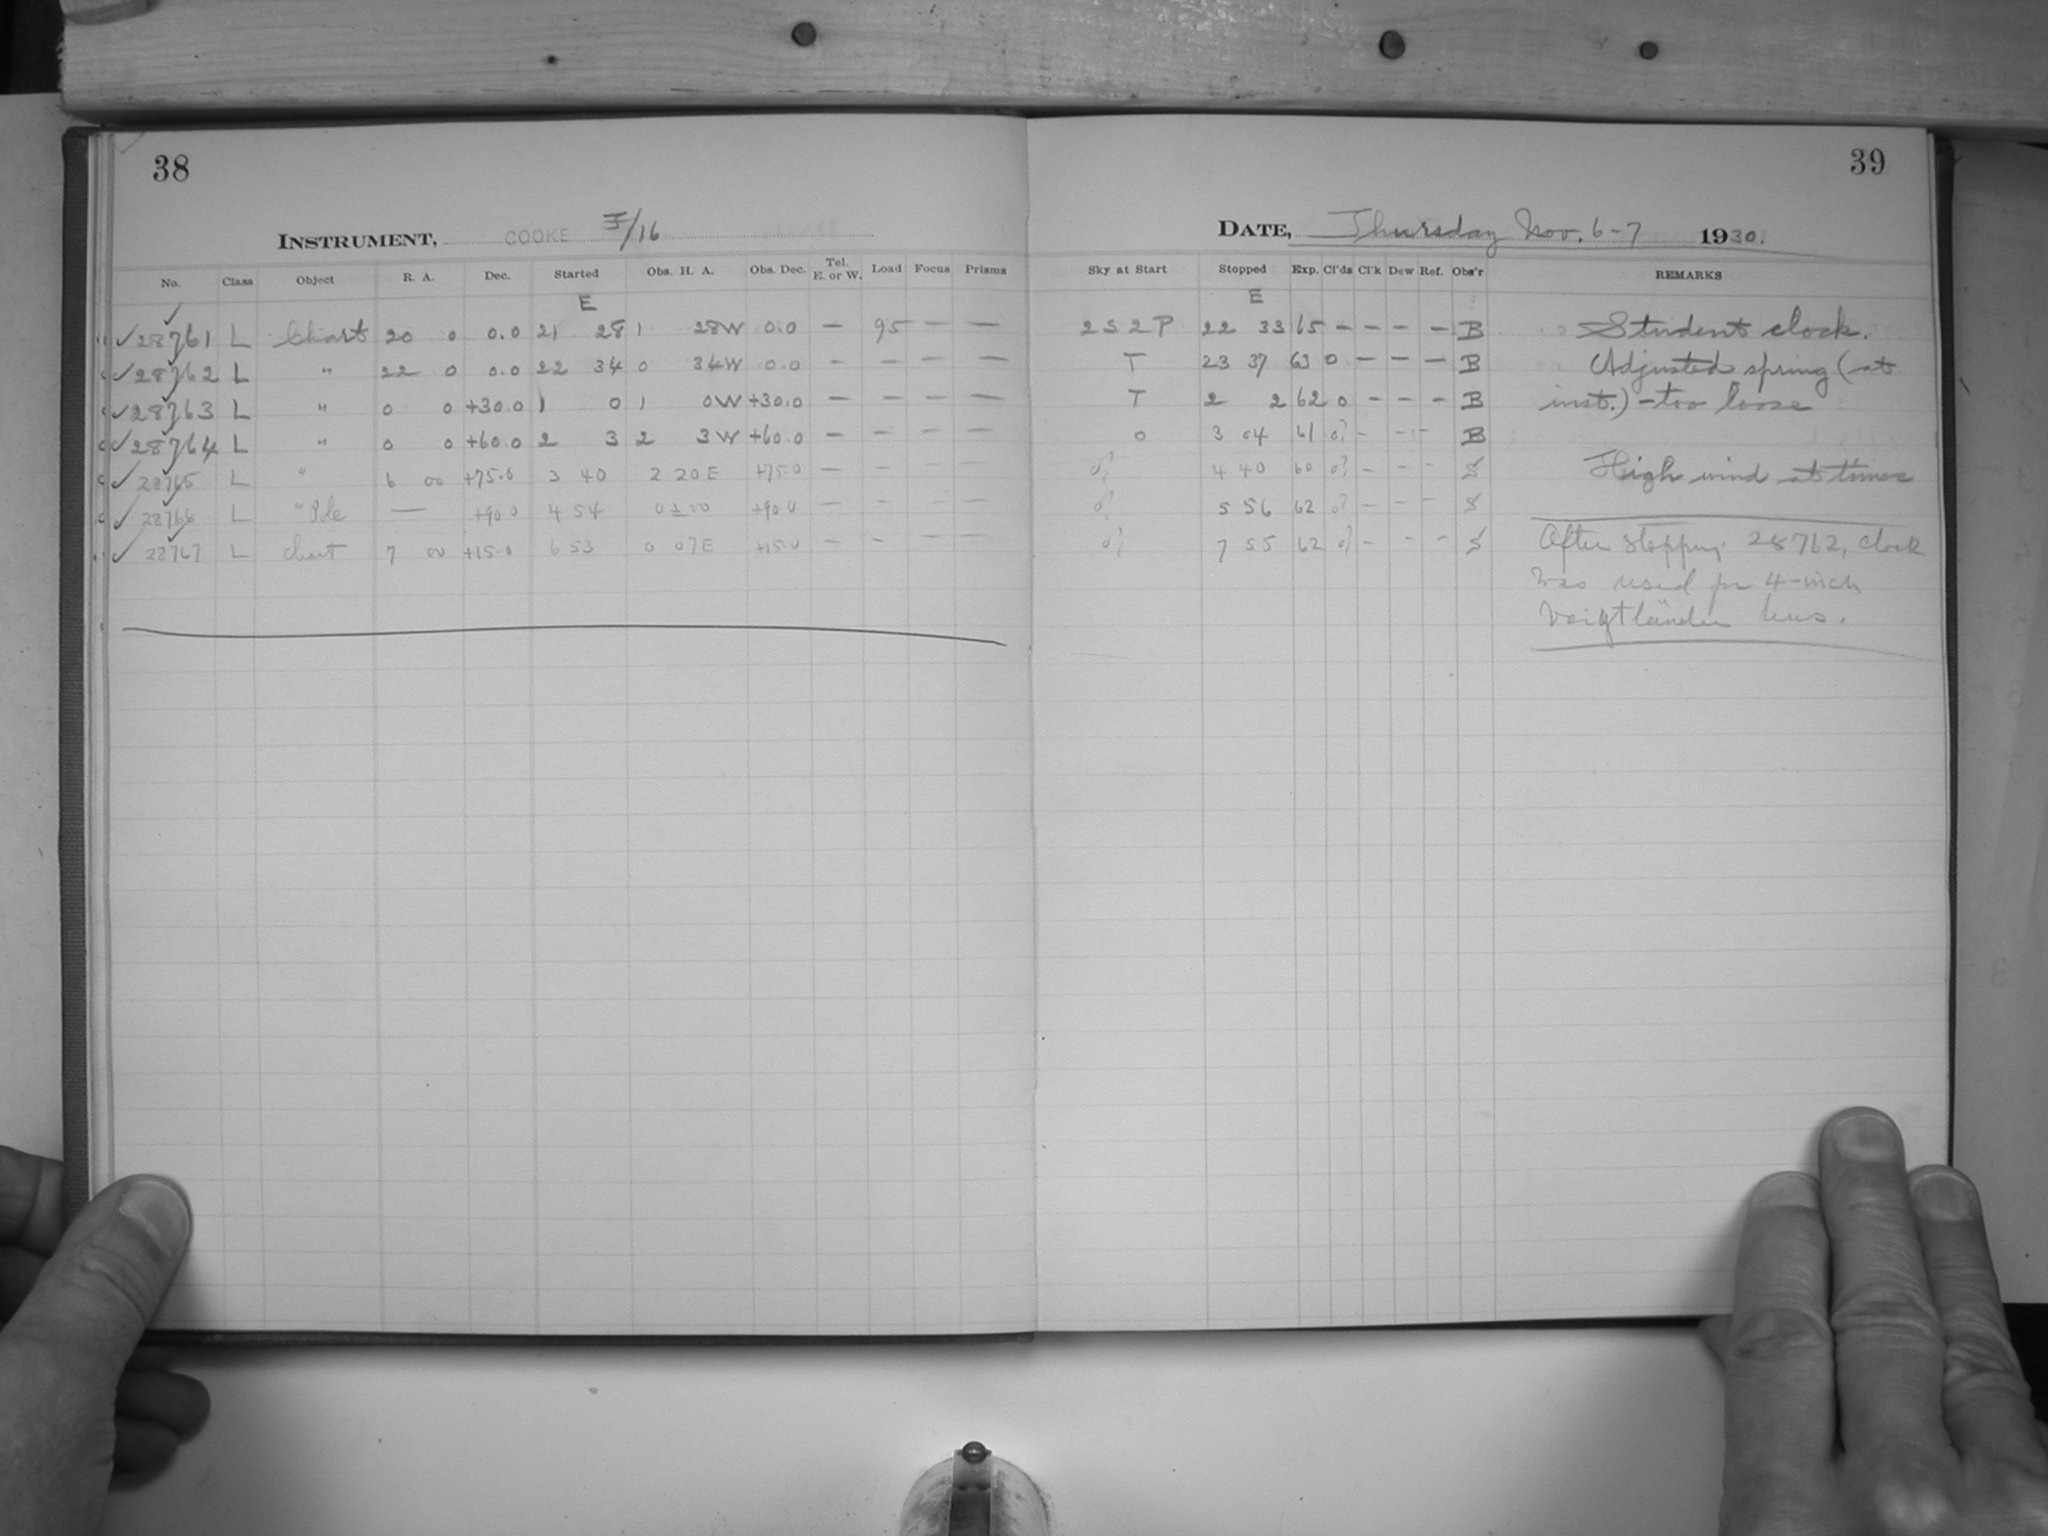 38
INSTRUMENT, COOKE F/16
No. Class Object R. A. Dec. Started Obs. H. A. Obs. Dec. Tel. E. or W. Load Focus Prisms
E
✓ 28761 L Chart 20 0 0.0 21 28 1 28W 0.0 — 95 — —
✓ 28762 L " 22 0 0.0 22 34 0 34W 0.0 — — — —
✓ 28763 L " 0 0 +30.0 1 0 1 0W +30.0 — — — —
✓ 28764 L " 0 0 +60.0 2 3 2 3W +60.0 — — — —
✓ 28765 L " 6 00 +75.0 3 40 2 20E +75.0 — — — —
✓ 28766 L " Pole — +90.0 4 54 0±00 +90.0 — — — —
✓ 28767 L chart 7 00 +15.0 6 53 0 07E +15.0 — — — —
39
DATE, Thursday Nov. 6-7 1930.
Sky at Start Stopped Exp. Cl'ds Cl'k Dew Ref. Obs'r REMARKS
E
2 S 2 P 22 33 65 — — — — B Student clock.
T 23 37 63 0 — — — B Adjusted spring (at
T 2 2 62 0 — — — B inst.) - too loose
0 3 04 61 0? — — — B
0? 4 40 60 0? — — — S High wind at times
0? 5 56 62 0? — — — S
0? 7 55 62 0? — — — S After stopping 28762, clock
was used for 4-inch
Voigtländer lens.